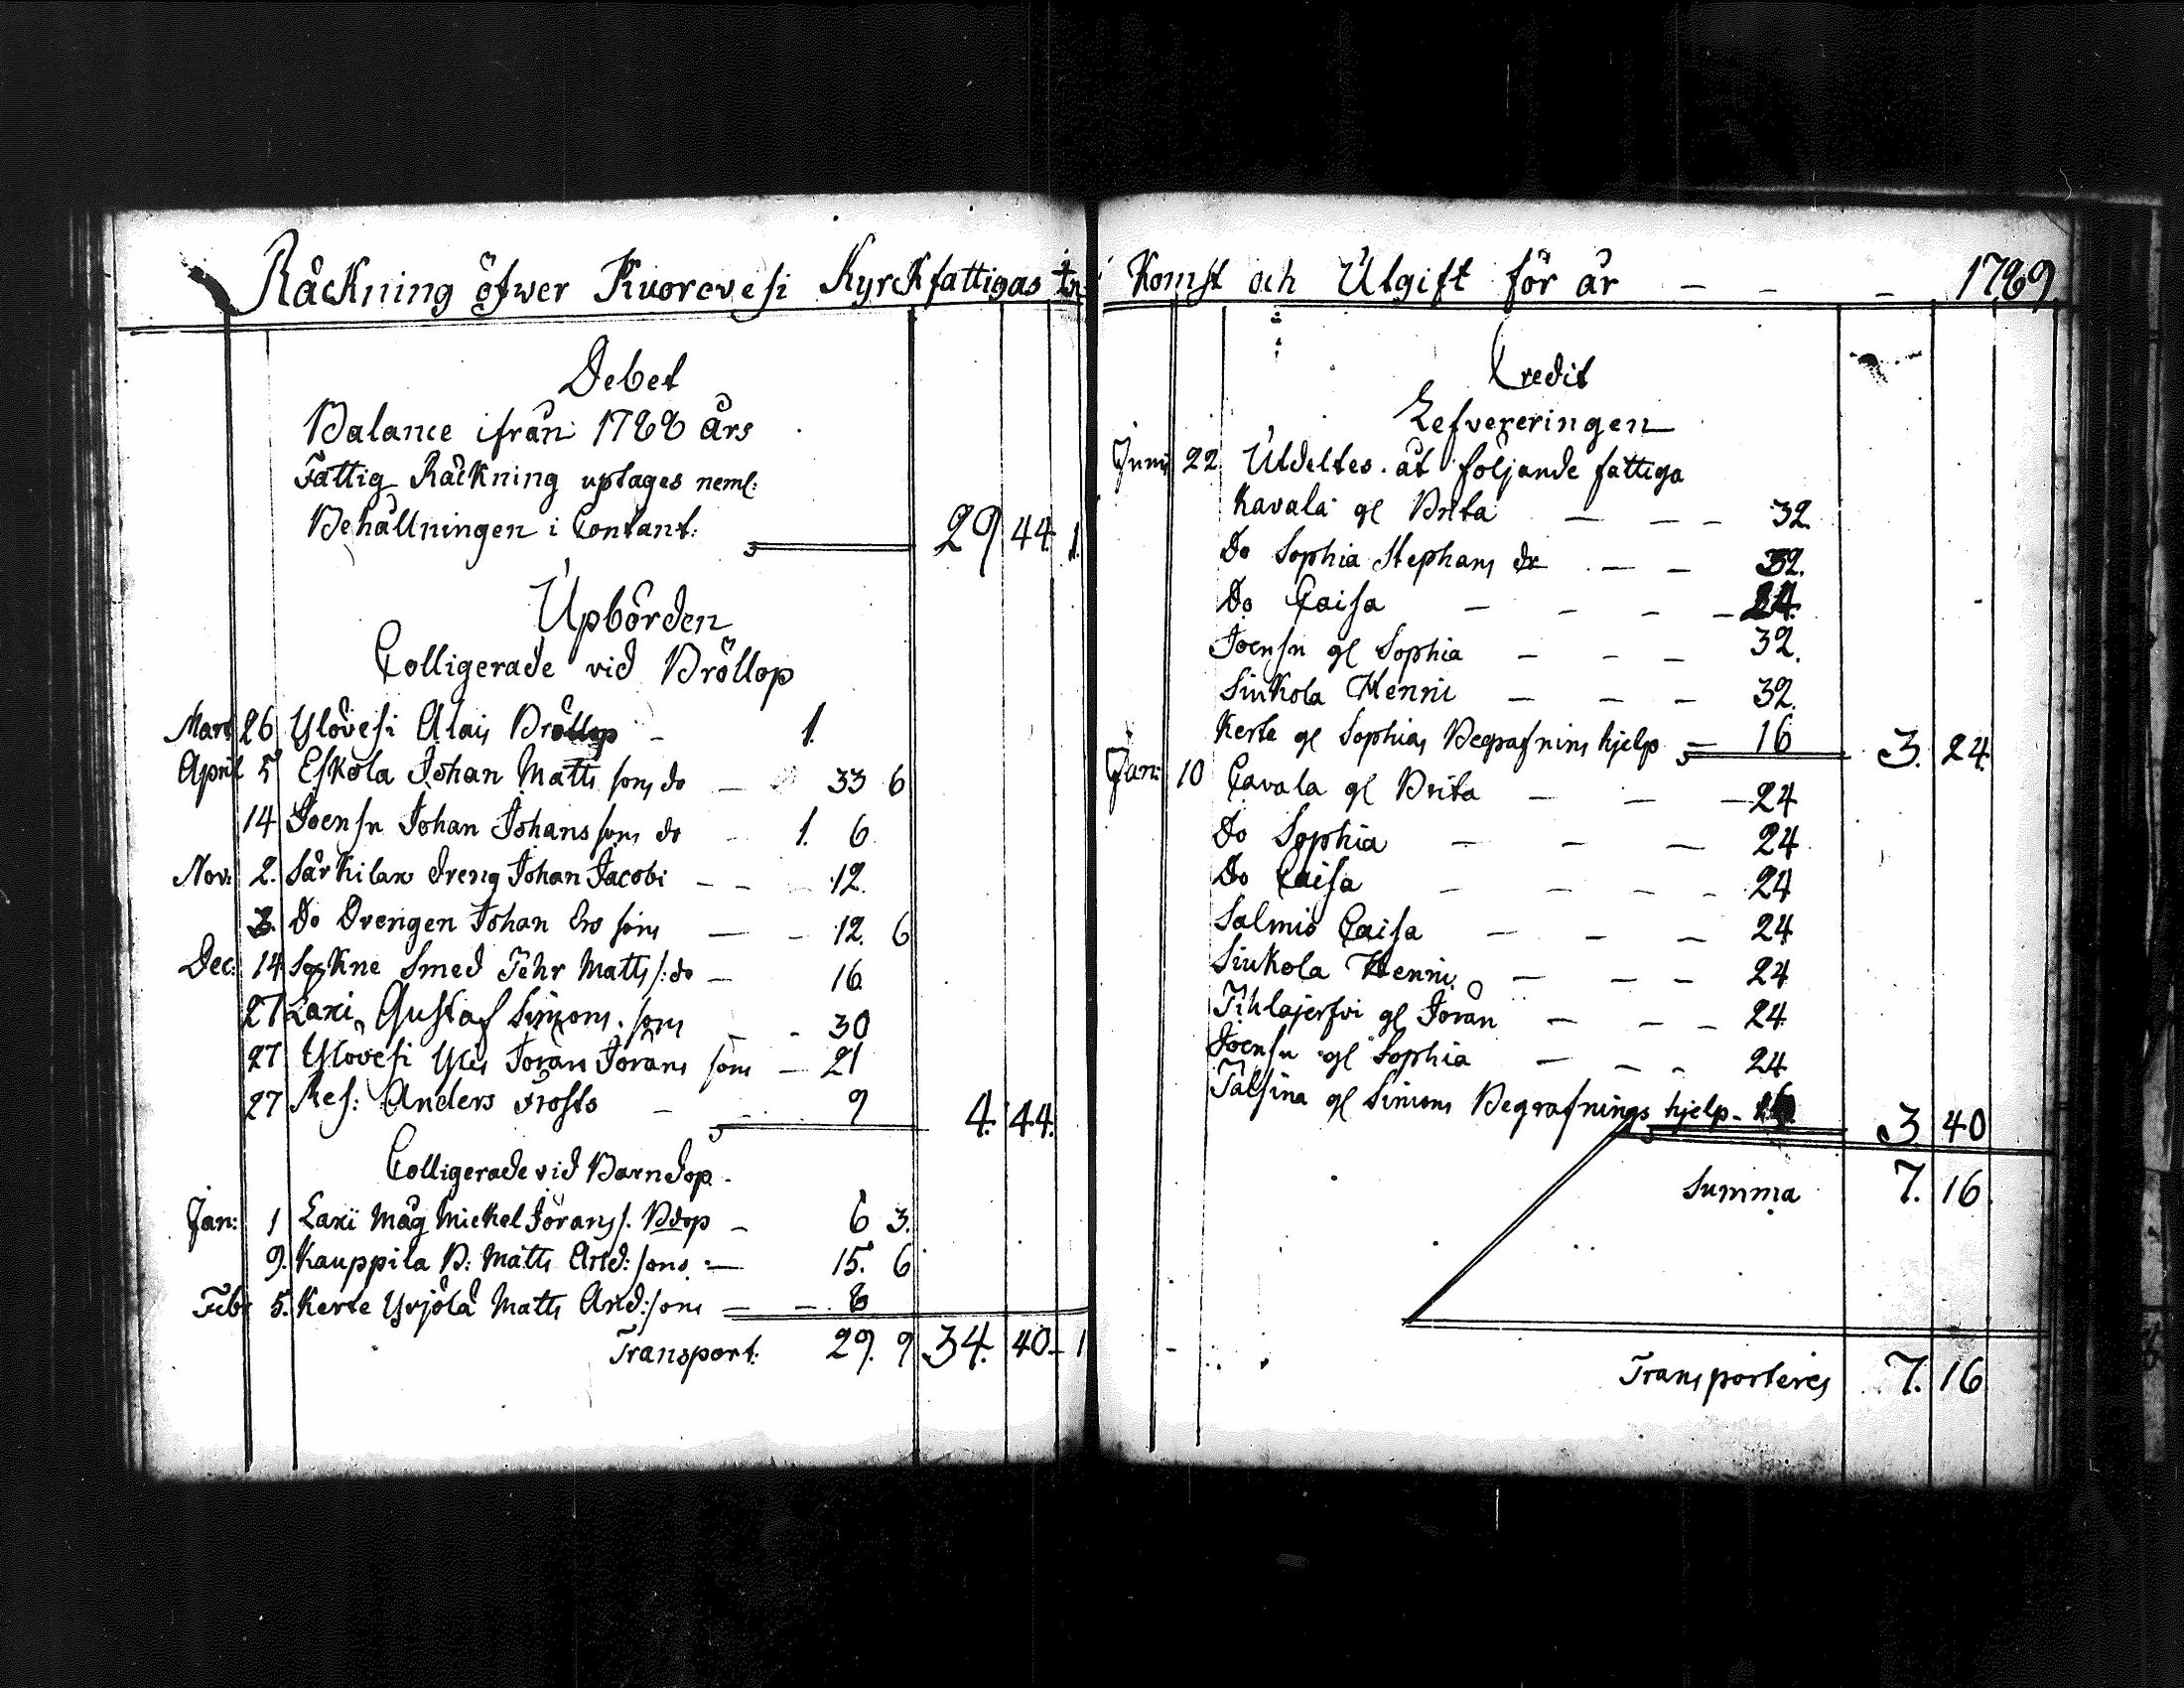 Räckning öfwer Kuorevesi Kyrckfattigas In
Debet
Balance ifrån 1788 års
Fattig Räckning uptages neml:
Behållningen i Contant: 29 44 1
Upbörden
Colligerade vid Bröllop
Mart 26 Ylövesi Alais Bröllop - 1.
April 5 Eskola Johan Matts sons do - 33 6
14 Joensu Johan Johans sons do - 1. 6
Nov: 2. Särkilax dreng Johan Jacobi - - 12.
3. Do Drengen Johan Ers sons - - 12. 6
Dec: 14 Sokne Smed Pehr Matts s: do - 16
27 Laxi Gustaf Simons sons - - 30
27 Ylovesi Yles Jöran Jörans sons - 21
27 Res: Anders Frosts - 9 4. 44.
Colligerade vid Barndop.
Jan: 1 Laxi Måg Mickel Jörans s. Bdop - 6 3.
9. Kauppila B: Matts And: sons - 15. 6
Feb: 5. Kerte Yrjölä Matts And: sons - - 8
Transport: 29. 9 34. 40 - 1
Komst och Utgift för år - - - 1789
Credit
Lefvereringen
Junii 22 Utdeltes åt följande fattiga
Kavala gl Brita - - - 32
Do Sophia Stephans dr - - 32.
Do Caisa - - - - 24.
Joensu gl Sophia - - - 32.
Siukola Henric - - - 32.
Kerte gl Sophias Begrafnins hjelp - 16 3. 24.
Jan: 10 Cavala gl Brita - - - 24
Do Sophia - - - 24
Do Caisa - - - 24
Salmio Caisa - - - 24
Siukola Henric - - - 24
Pihlajerfvi gl Jöran - - - 24
Joensu gl Sophia - - - 24
Talsina gl Simons Begrafnings hjelp - 16 3 40
Summa 7. 16
Transporteres 7. 16